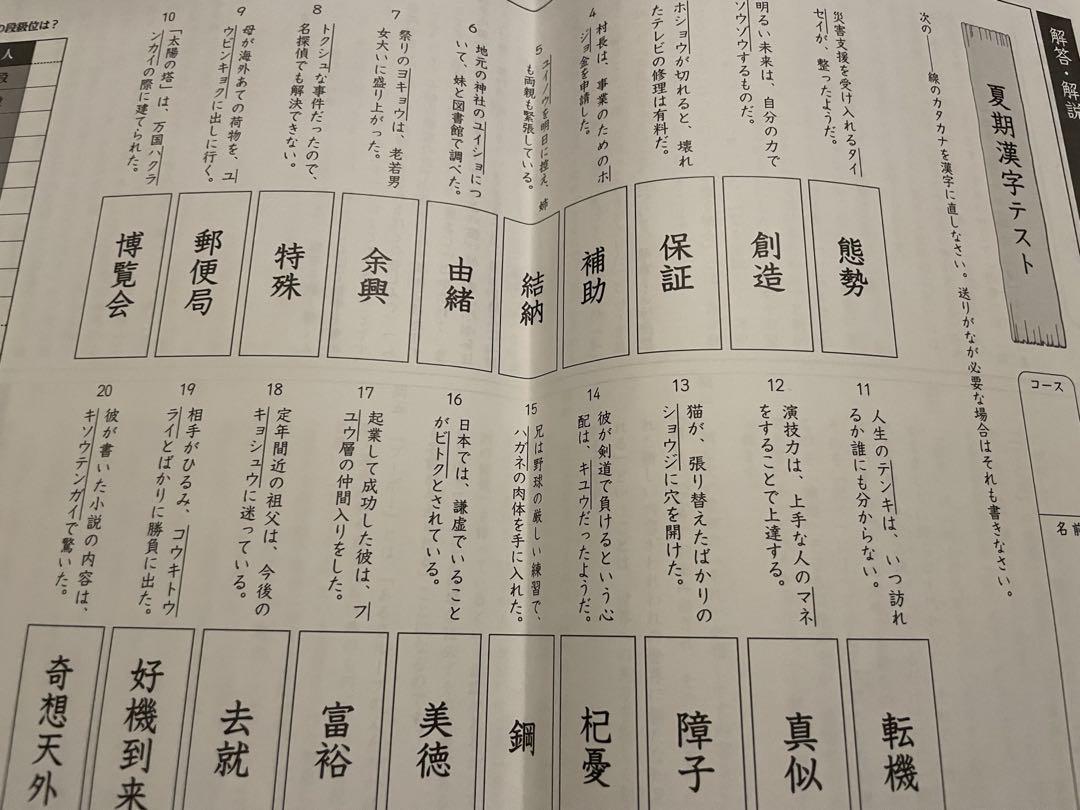 解答・解説
夏期漢字テスト
コース
名前
次の――線のカタカナを漢字に直しなさい。送りがなが必要な場合はそれも書きなさい。
災害支援を受け入れるタイ
セイが、整ったようだ。
態勢
明るい未来は、自分の力で
ソウゾウするものだ。
創造
ホショウが切れると、壊れ
たテレビの修理は有料だ。
保証
4
村長は、事業のためのホ
ジョ金を申請した。
補助
5
ユイノウを明日に控え、姉
も両親も緊張している。
結納
6
地元の神社のユイショにつ
いて、妹と図書館で調べた。
由緒
7
祭りのヨキョウは、老若男
女大いに盛り上がった。
余興
8
トクシュな事件だったので、
名探偵でも解決できない。
特殊
9
母が海外あての荷物を、ユ
ウビンキョクに出しに行く。
郵便局
10
「太陽の塔」は、万国ハクラ
ンカイの際に建てられた。
博覧会
11
人生のテンキは、いつ訪れ
るか誰にも分からない。
転機
12
演技力は、上手な人のマネ
をすることで上達する。
真似
13
猫が、張り替えたばかりの
ショウジに穴を開けた。
障子
14
彼が剣道で負けるという心
配は、キユウだったようだ。
杞憂
15
兄は野球の厳しい練習で、
ハガネの肉体を手に入れた。
鋼
16
日本では、謙虚でいること
がビトクとされている。
美徳
17
起業して成功した彼は、フ
ユウ層の仲間入りをした。
富裕
18
定年間近の祖父は、今後の
キョシュウに迷っている。
去就
19
相手がひるみ、コウキトウ
ライとばかりに勝負に出た。
好機到来
20
彼が書いた小説の内容は、
キソウテンガイで驚いた。
奇想天外
の段級位は？
人
段